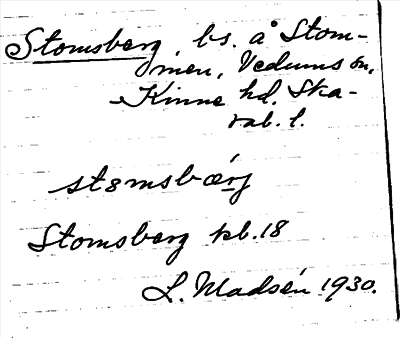 Stomsberg, bs. å Stom-
men, Vedums sn,
Kinne hd. Ska-
rab. l.
stɷmsbærj
Stomsberg kb. 18
L. Madsén 1930.